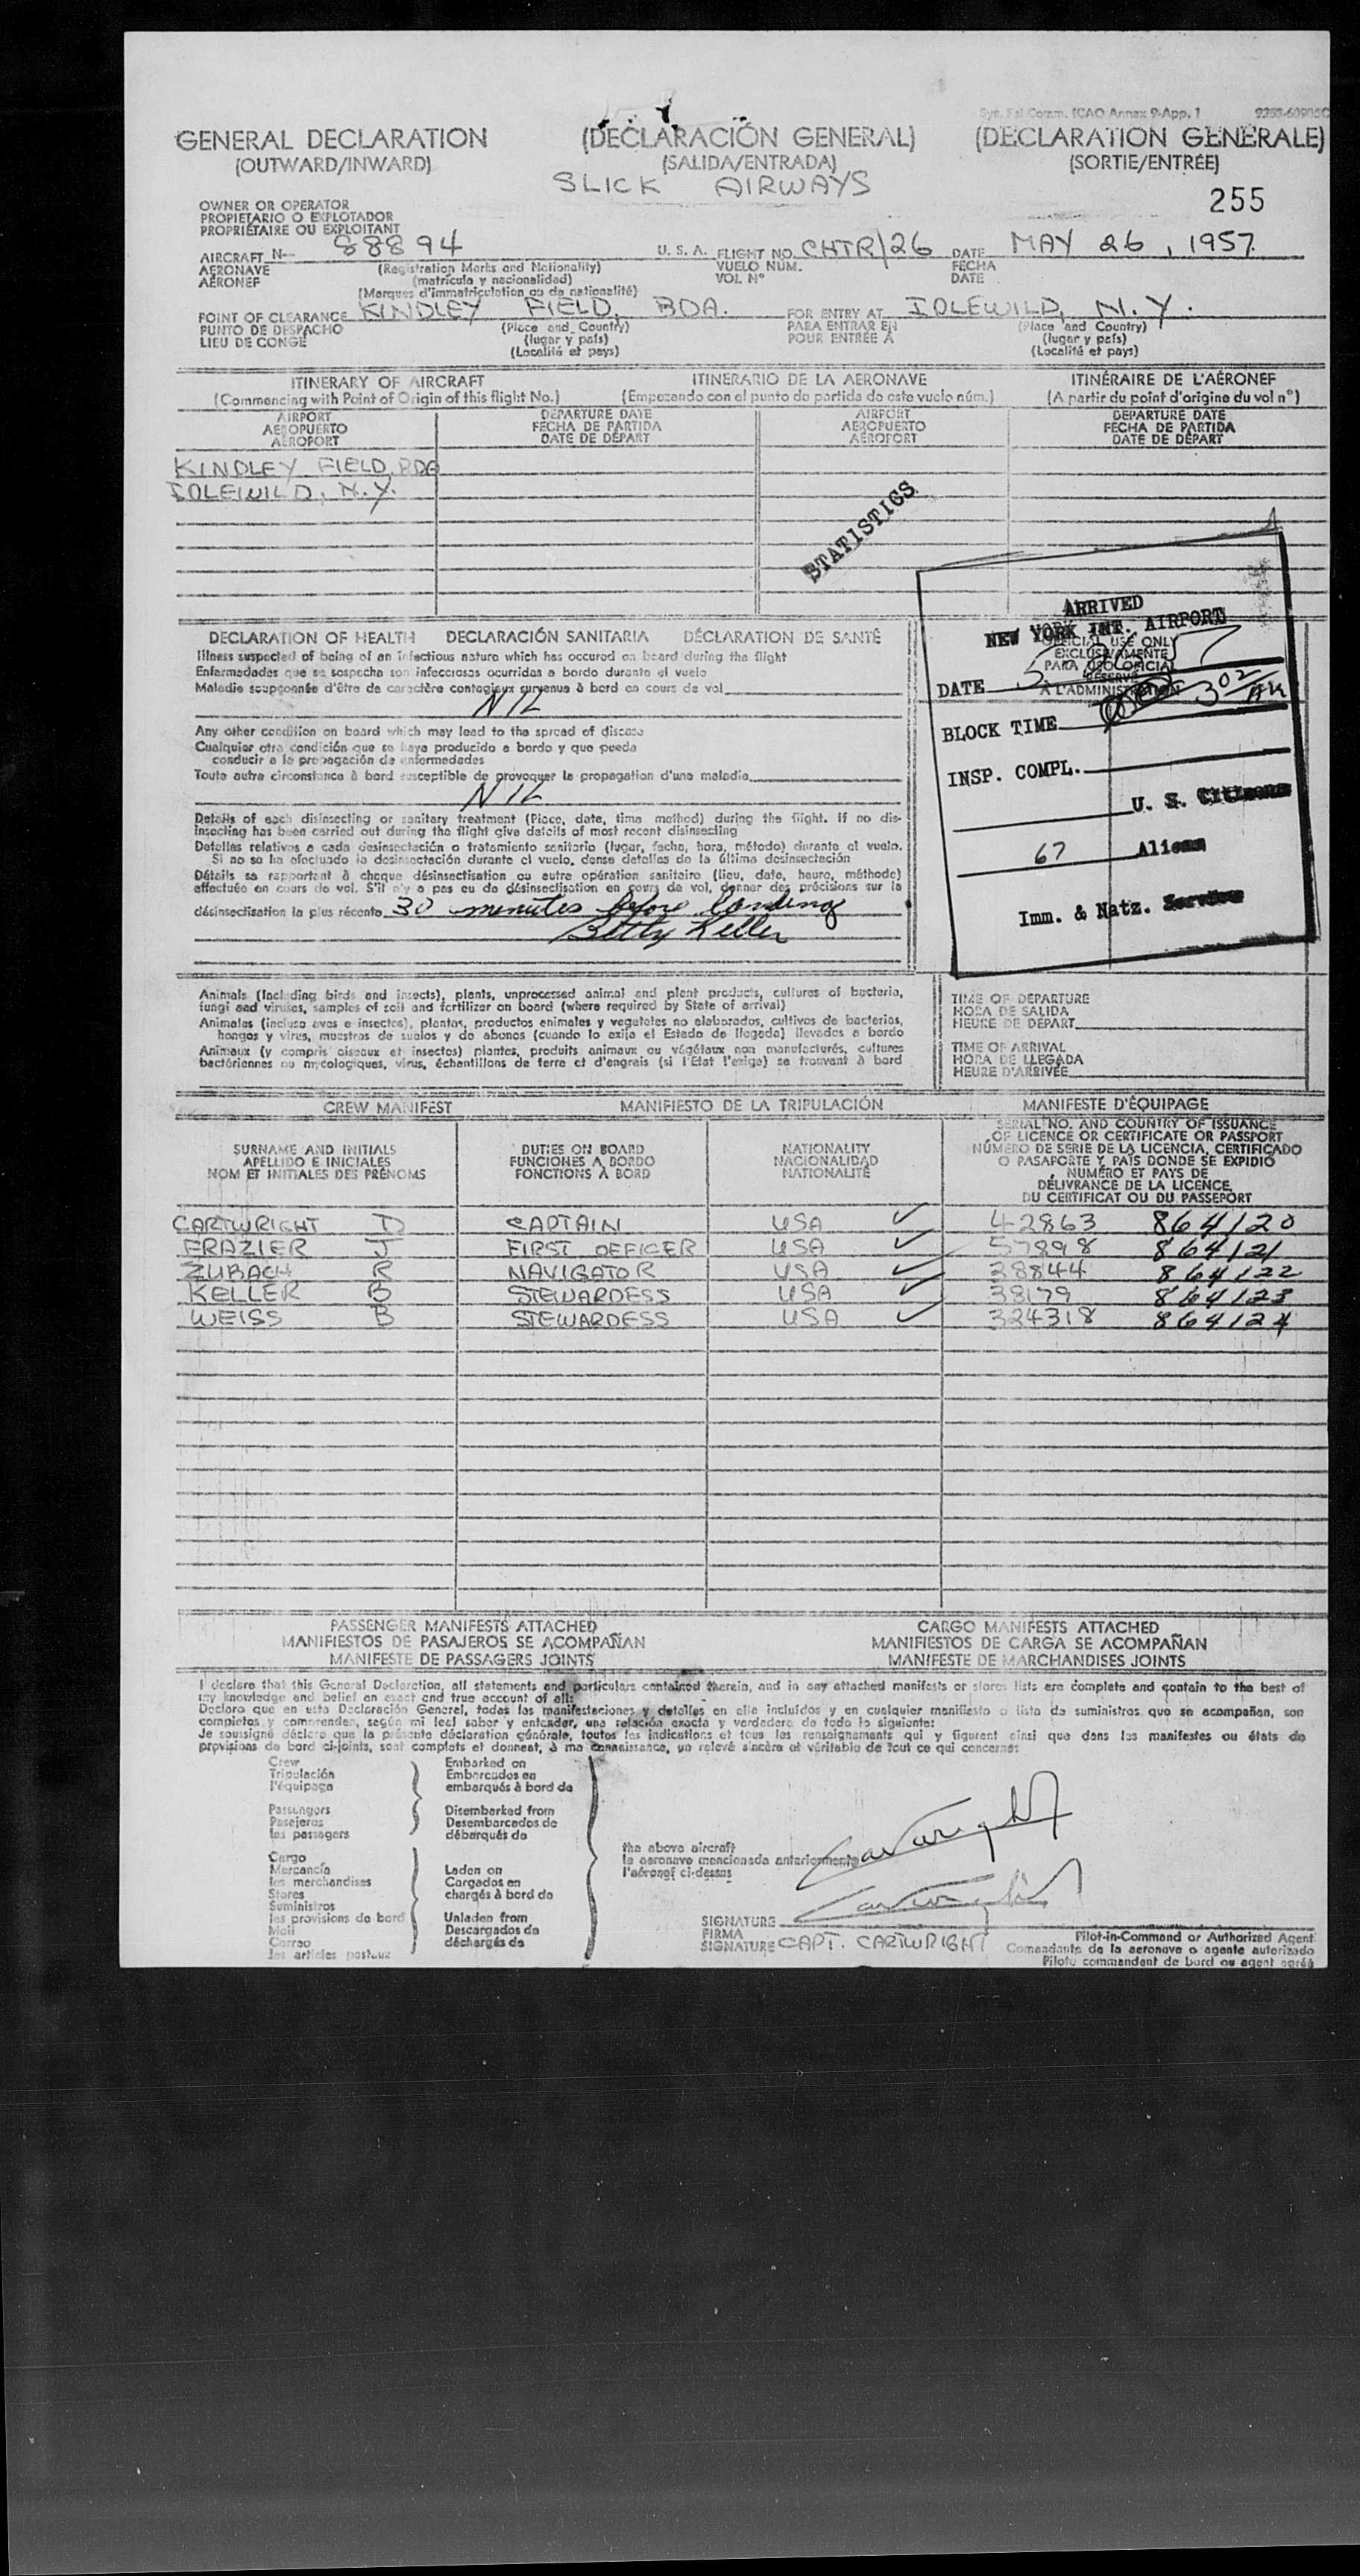 Syn. Fal Comm. ICAO Annex 9-App. 1
GENERAL DECLARATION (DECLARACIÓN GENERAL) (DECLARATION GÉNÉRALE)
(OUTWARD/INWARD) (SALIDA/ENTRADA) (SORTIE/ENTRÉE)
SLICK AIRWAYS
255
OWNER OR OPERATOR
PROPIETARIO O EXPLOTADOR
PROPRIÉTAIRE OU EXPLOITANT
AIRCRAFT N- 88894 U. S. A. FLIGHT NO. CHTR/26 DATE MAY 26, 1957
AERONAVE (Registration Marks and Nationality) VUELO NÚM. FECHA
AÉRONEF (matrícula y nacionalidad) VOL Nº DATE
(Marques d'immatriculation ou de nationalité)
POINT OF CLEARANCE KINDLEY FIELD, BDA. FOR ENTRY AT IDLEWILD, N.Y.
PUNTO DE DESPACHO (Place and Country) PARA ENTRAR EN (Place and Country)
LIEU DE CONGÉ (lugar y país) POUR ENTRÉE À (lugar y país)
(Localité et pays) (Localité et pays)
ITINERARY OF AIRCRAFT ITINERARIO DE LA AERONAVE ITINÉRAIRE DE L'AÉRONEF
(Commencing with Point of Origin of this flight No.) (Empezando con el punto de partida de este vuelo núm.) (A partir du point d'origine du vol nº)
AIRPORT DEPARTURE DATE AIRPORT DEPARTURE DATE
AEROPUERTO FECHA DE PARTIDA AEROPUERTO FECHA DE PARTIDA
AÉROPORT DATE DE DÉPART AÉROPORT DATE DE DÉPART
KINDLEY FIELD, BDA
IDLEWILD, N.Y.
STATISTICS
DECLARATION OF HEALTH DECLARACIÓN SANITARIA DÉCLARATION DE SANTÉ
Illness suspected of being of an infectious nature which has occured on board during the flight
Enfermedades que se sospecha son infecciosas ocurridas a bordo durante el vuelo
Maladie soupçonnée d'être de caractère contagieux survenue à bord en cours de vol
NIL
Any other condition on board which may lead to the spread of disease
Cualquier otra condición que se haya producido a bordo y que pueda
conducir a la propagación de enfermedades
Toute autre circonstance à bord susceptible de provoquer la propagation d'une maladie
NIL
Details of each disinsecting or sanitary treatment (Place, date, time method) during the flight. If no dis-
insecting has been carried out during the flight give details of most recent disinsecting
Detalles relativos a cada desinsectación o tratamiento sanitario (lugar, fecha, hora, método) durante el vuelo.
Si no se ha efectuado la desinsectación durante el vuelo, dense detalles de la última desinsectación
Détails se rapportant à chaque désinsectisation ou autre opération sanitaire (lieu, date, heure, méthode)
effectuée en cours de vol. S'il n'y a pas eu de désinsectisation en cours de vol, donner des précisions sur la
désinsectisation la plus récente 30 minutes before landing
Betty Keller
ARRIVED
NEW YORK INT. AIRPORT
OFFICIAL USE ONLY
EXCLUSIVAMENTE
PARA USO OFICIAL
RÉSERVÉ
À L'ADMINISTRATION
DATE
BLOCK TIME 302 AM
INSP. COMPL.
U. S. Citizens
67 Aliens
Imm. & Natz. Service
Animals (Including birds and insects), plants, unprocessed animal and plant products, cultures of bacteria,
fungi and viruses, samples of soil and fertilizer on board (where required by State of arrival)
Animales (incluso aves e insectos), plantas, productos animales y vegetales no elaborados, cultivos de bacterias,
hongos y virus, muestras de suelos y de abonos (cuando lo exija el Estado de llegada) llevados a bordo
Animaux (y compris oiseaux et insectes) plantes, produits animaux ou végétaux non manufacturés, cultures
bactériennes ou mycologiques, virus, échantillons de terre et d'engrais (si l'Etat l'exige) se trouvant à bord
TIME OF DEPARTURE
HORA DE SALIDA
HEURE DE DÉPART
TIME OF ARRIVAL
HORA DE LLEGADA
HEURE D'ARRIVÉE
CREW MANIFEST MANIFIESTO DE LA TRIPULACIÓN MANIFESTE D'ÉQUIPAGE
SURNAME AND INITIALS
APELLIDO E INICIALES
NOM ET INITIALES DES PRÉNOMS
DUTIES ON BOARD
FUNCIONES A BORDO
FONCTIONS À BORD
NATIONALITY
NACIONALIDAD
NATIONALITÉ
SERIAL NO. AND COUNTRY OF ISSUANCE
OF LICENCE OR CERTIFICATE OR PASSPORT
NÚMERO DE SERIE DE LA LICENCIA, CERTIFICADO
O PASAPORTE Y PAÍS DONDE SE EXPIDIÓ
NUMÉRO ET PAYS DE
DÉLIVRANCE DE LA LICENCE,
DU CERTIFICAT OU DU PASSEPORT
CARTWRIGHT D CAPTAIN USA ✓ 42863 864120
FRAZIER J FIRST OFFICER USA ✓ 57898 864121
ZUBACH R NAVIGATOR USA ✓ 28844 864122
KELLER B STEWARDESS USA ✓ 38179 864123
WEISS B STEWARDESS USA ✓ 324318 864124
PASSENGER MANIFESTS ATTACHED CARGO MANIFESTS ATTACHED
MANIFIESTOS DE PASAJEROS SE ACOMPAÑAN MANIFIESTOS DE CARGA SE ACOMPAÑAN
MANIFESTE DE PASSAGERS JOINTS MANIFESTE DE MARCHANDISES JOINTS
I declare that this General Declaration, all statements and particulars contained therein, and in any attached manifests or stores lists are complete and contain to the best of
my knowledge and belief an exact and true account of all:
Declaro que en esta Declaración General, todas las manifestaciones y detalles en ella incluídos y en cualquier manifiesto o lista de suministros que se acompañan, son
completos y comprenden, según mi leal saber y entender, una relación exacta y verdadera de todo lo siguiente:
Je soussigné déclare que la présente déclaration générale, toutes les indications et tous les renseignements qui y figurent ainsi que dans les manifestes ou états de
provisions de bord ci-joints, sont complets et donnent, à ma connaissance, un relevé sincère et véritable de tout ce qui concerne:
Crew Embarked on
Tripulación Embarcados en
l'équipage embarqués à bord de
Passengers Disembarked from
Pasajeros Desembarcados de
les passagers débarqués de
Cargo
Mercancía Laden on
les marchandises Cargados en
Stores chargés à bord de
Suministros
les provisions de bord Unladen from
Mail Descargados de
Correo déchargés de
les articles postaux
the above aircraft
la aeronave mencionada anteriormente
l'aéronef ci-dessus
Cartwright
Cartwright
SIGNATURE
FIRMA
SIGNATURE CAPT. CARTWRIGHT
Pilot-in-Command or Authorized Agent
Comandante de la aeronave o agente autorizado
Pilote commandant de bord ou agent agréé